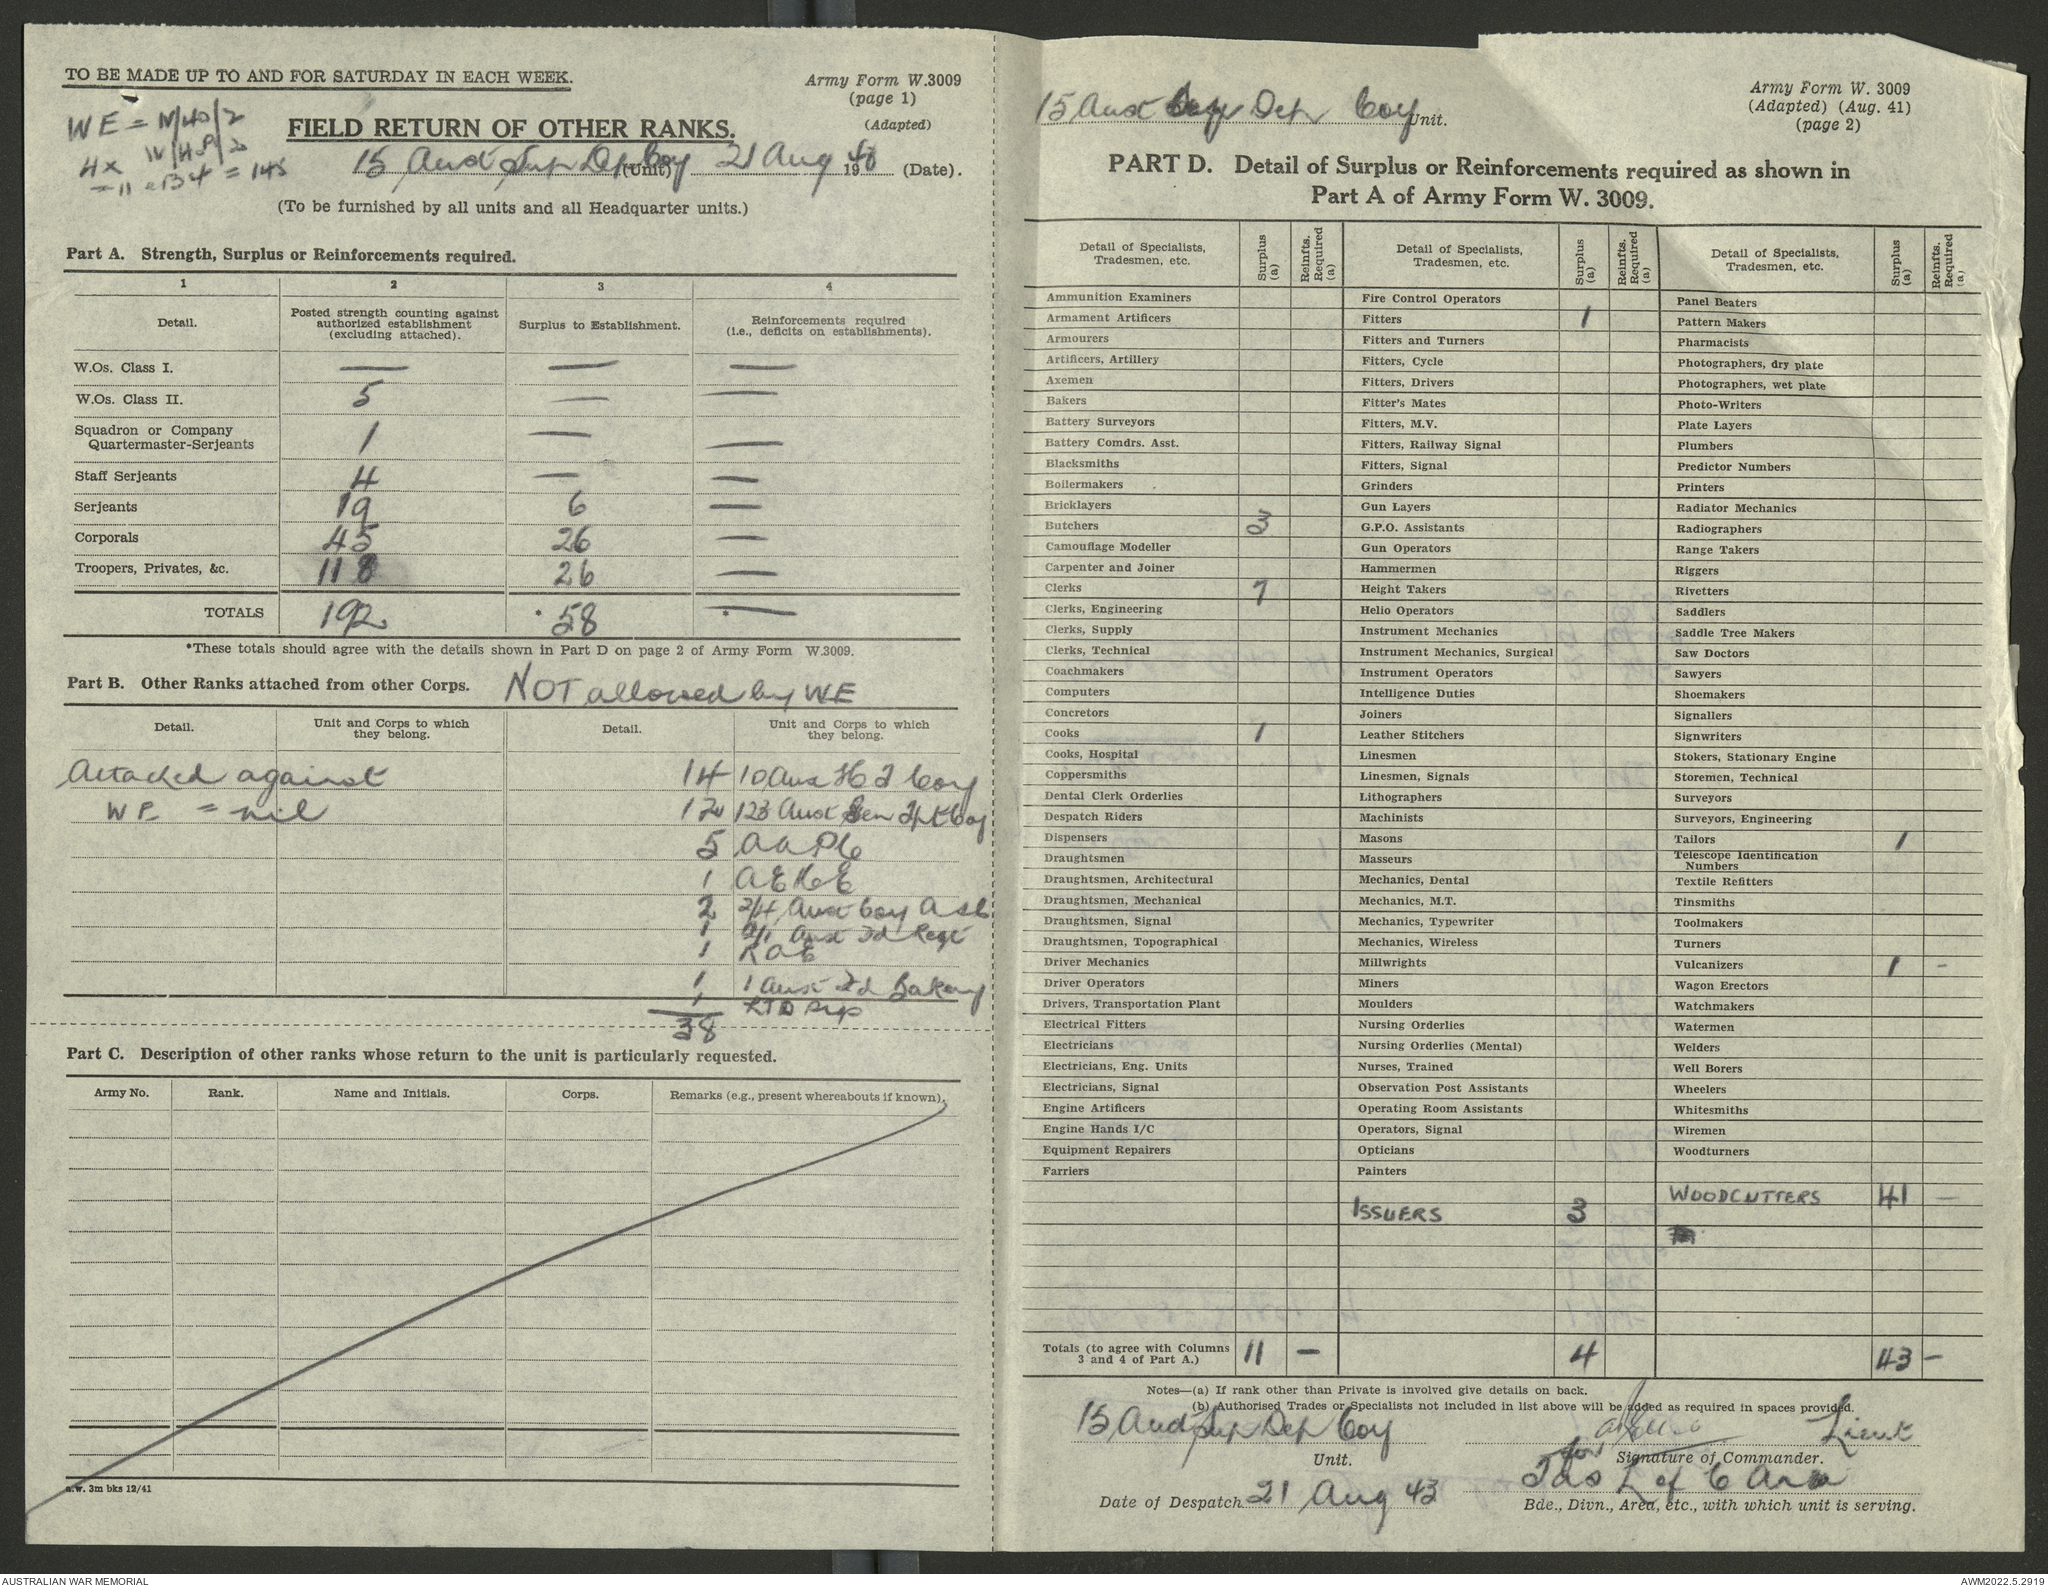 TO BE MADE UP TO AND FOR SATURDAY IN EACH WEEK.
Army Form W.3009
(page 1)
(Adapted)
WE =
4 x
= 145
FIELD RETURN OF OTHER RANKS.
15 Aust Sup Dep Coy (Unit) 21 Aug 19 (Date).
(To be furnished by all units and all Headquarter units.)
Part A. Strength, Surplus or Reinforcements required.
1 2 3 4
Detail. Posted strength counting against authorized establishment (excluding attached). Surplus to Establishment. Reinforcements required (i.e., deficits on establishments).
W.Os. Class I. — — —
W.Os. Class II. 5 — —
Squadron or Company Quartermaster-Serjeants 1 — —
Staff Serjeants 4 — —
Serjeants 19 6 —
Corporals 45 26 —
Troopers, Privates, &c. 118 26 —
TOTALS 192 * 58 * —
*These totals should agree with the details shown in Part D on page 2 of Army Form W.3009.
Part B. Other Ranks attached from other Corps. NOT allowed by WE
Detail. Unit and Corps to which they belong. Detail. Unit and Corps to which they belong.
Attached against 14 10 Aust Coy
WE = nil 12 123 Aust Gen Tpt Coy
5 AAPC
1
2 2/4 Aust Coy
1 Aust Fd Regt
1 RAE
1 1 Aust Fd Bakery
1 LTD
38
Part C. Description of other ranks whose return to the unit is particularly requested.
Army No. Rank. Name and Initials. Corps. Remarks (e.g., present whereabouts if known).
a.w. 3m bks 12/41
15 Aust Dep Coy Unit.
Army Form W. 3009
(Adapted) (Aug. 41)
(page 2)
PART D. Detail of Surplus or Reinforcements required as shown in
Part A of Army Form W. 3009.
Detail of Specialists, Tradesmen, etc. Surplus (a) Reinfts. Required (a) Detail of Specialists, Tradesmen, etc. Surplus (a) Reinfts. Required (a) Detail of Specialists, Tradesmen, etc. Surplus (a) Reinfts. Required (a)
Ammunition Examiners Fire Control Operators Panel Beaters
Armament Artificers Fitters 1 Pattern Makers
Armourers Fitters and Turners Pharmacists
Artificers, Artillery Fitters, Cycle Photographers, dry plate
Axemen Fitters, Drivers Photographers, wet plate
Bakers Fitter's Mates Photo-Writers
Battery Surveyors Fitters, M.V. Plate Layers
Battery Comdrs. Asst. Fitters, Railway Signal Plumbers
Blacksmiths Fitters, Signal Predictor Numbers
Boilermakers Grinders Printers
Bricklayers Gun Layers Radiator Mechanics
Butchers 3 G.P.O. Assistants Radiographers
Camouflage Modeller Gun Operators Range Takers
Carpenter and Joiner Hammermen Riggers
Clerks 7 Height Takers Rivetters
Clerks, Engineering Helio Operators Saddlers
Clerks, Supply Instrument Mechanics Saddle Tree Makers
Clerks, Technical Instrument Mechanics, Surgical Saw Doctors
Coachmakers Instrument Operators Sawyers
Computers Intelligence Duties Shoemakers
Concretors Joiners Signallers
Cooks 1 Leather Stitchers Signwriters
Cooks, Hospital Linesmen Stokers, Stationary Engine
Coppersmiths Linesmen, Signals Storemen, Technical
Dental Clerk Orderlies Lithographers Surveyors
Despatch Riders Machinists Surveyors, Engineering
Dispensers Masons Tailors 1
Draughtsmen Masseurs Telescope Identification Numbers
Draughtsmen, Architectural Mechanics, Dental Textile Refitters
Draughtsmen, Mechanical Mechanics, M.T. Tinsmiths
Draughtsmen, Signal Mechanics, Typewriter Toolmakers
Draughtsmen, Topographical Mechanics, Wireless Turners
Driver Mechanics Millwrights Vulcanizers 1 -
Driver Operators Miners Wagon Erectors
Drivers, Transportation Plant Moulders Watchmakers
Electrical Fitters Nursing Orderlies Watermen
Electricians Nursing Orderlies (Mental) Welders
Electricians, Eng. Units Nurses, Trained Well Borers
Electricians, Signal Observation Post Assistants Wheelers
Engine Artificers Operating Room Assistants Whitesmiths
Engine Hands I/C Operators, Signal Wiremen
Equipment Repairers Opticians Woodturners
Farriers Painters
WOODCUTTERS 41 —
ISSUERS 3
Totals (to agree with Columns 3 and 4 of Part A.) 11 — 4 43 —
Notes—(a) If rank other than Private is involved give details on back.
(b) Authorised Trades or Specialists not included in list above will be added as required in spaces provided.
15 Aust Sup Dep Coy Lieut
Unit. for Signature of Commander.
Tas L of C Area
Date of Despatch 21 Aug 43 Bde., Divn., Area, etc., with which unit is serving.
AUSTRALIAN WAR MEMORIAL
AWM2022.5.2919